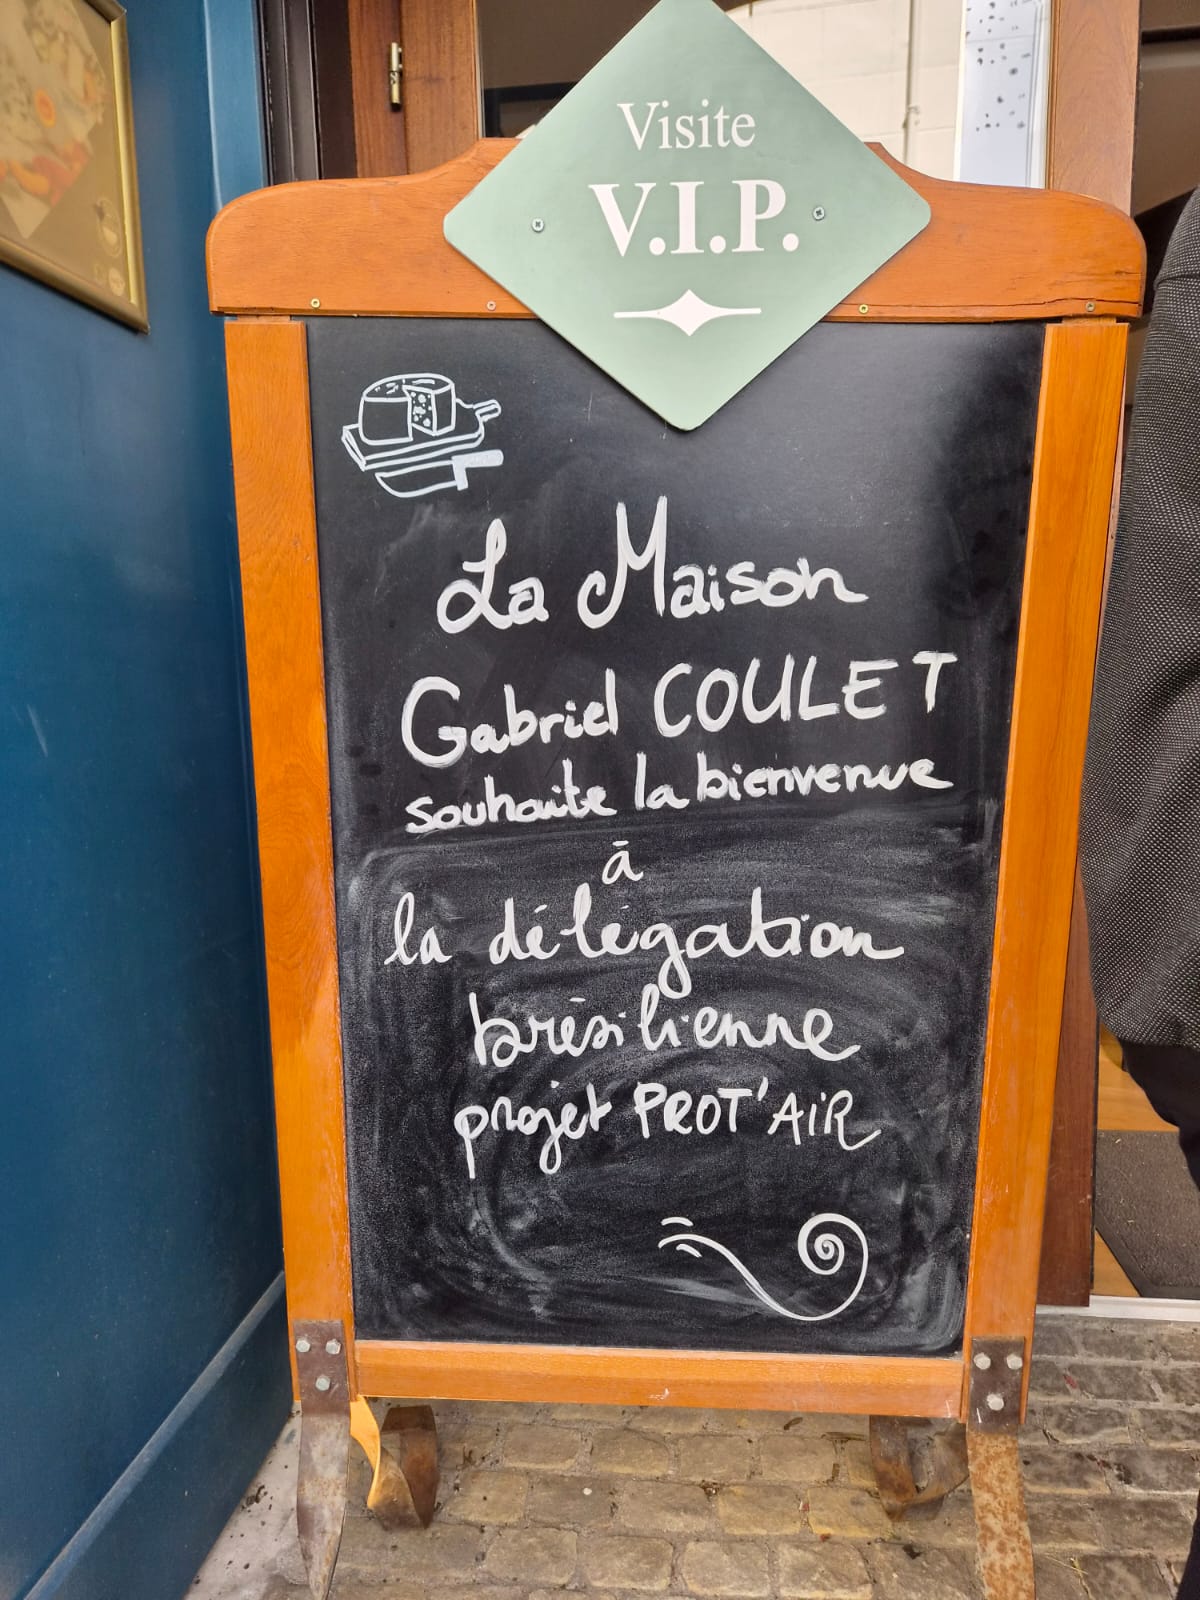 Visite
V.I.P.
La Maison
Gabriel COULET
souhaite la bienvenue
à
la délégation
brésilienne
projet PROT'AIR